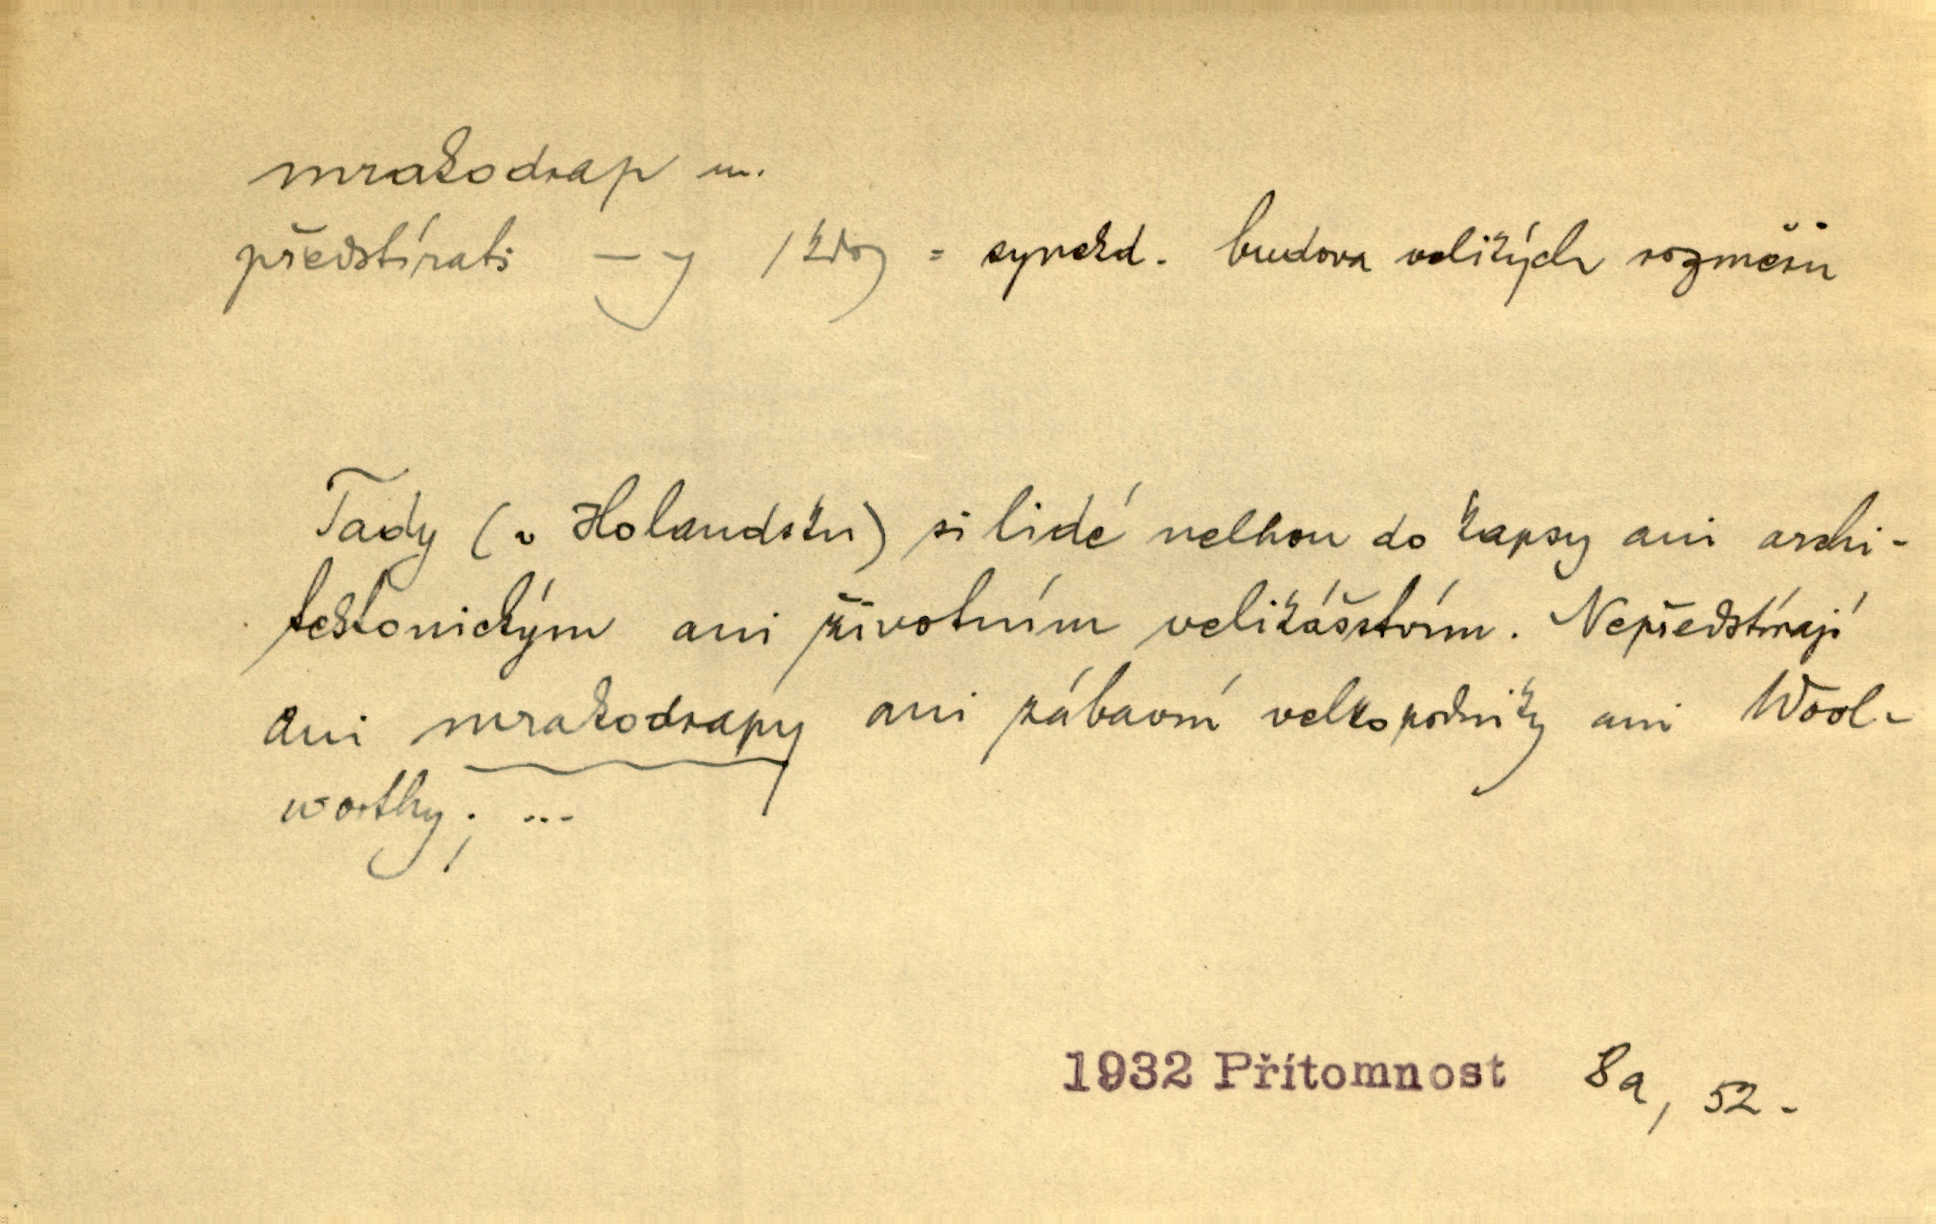 mrakodrap m.
předstírati —y /kdo/ = synekd. budova velikých rozměrů
Tady (v Holandsku) si lidé nelhou do kapsy ani archi-
tektonickým ani životním velikášstvím. Nepředstírají
ani mrakodrapy ani zábavní velkopodniky ani Wool-
worthy; ...
1932 Přítomnost 8a, 52.